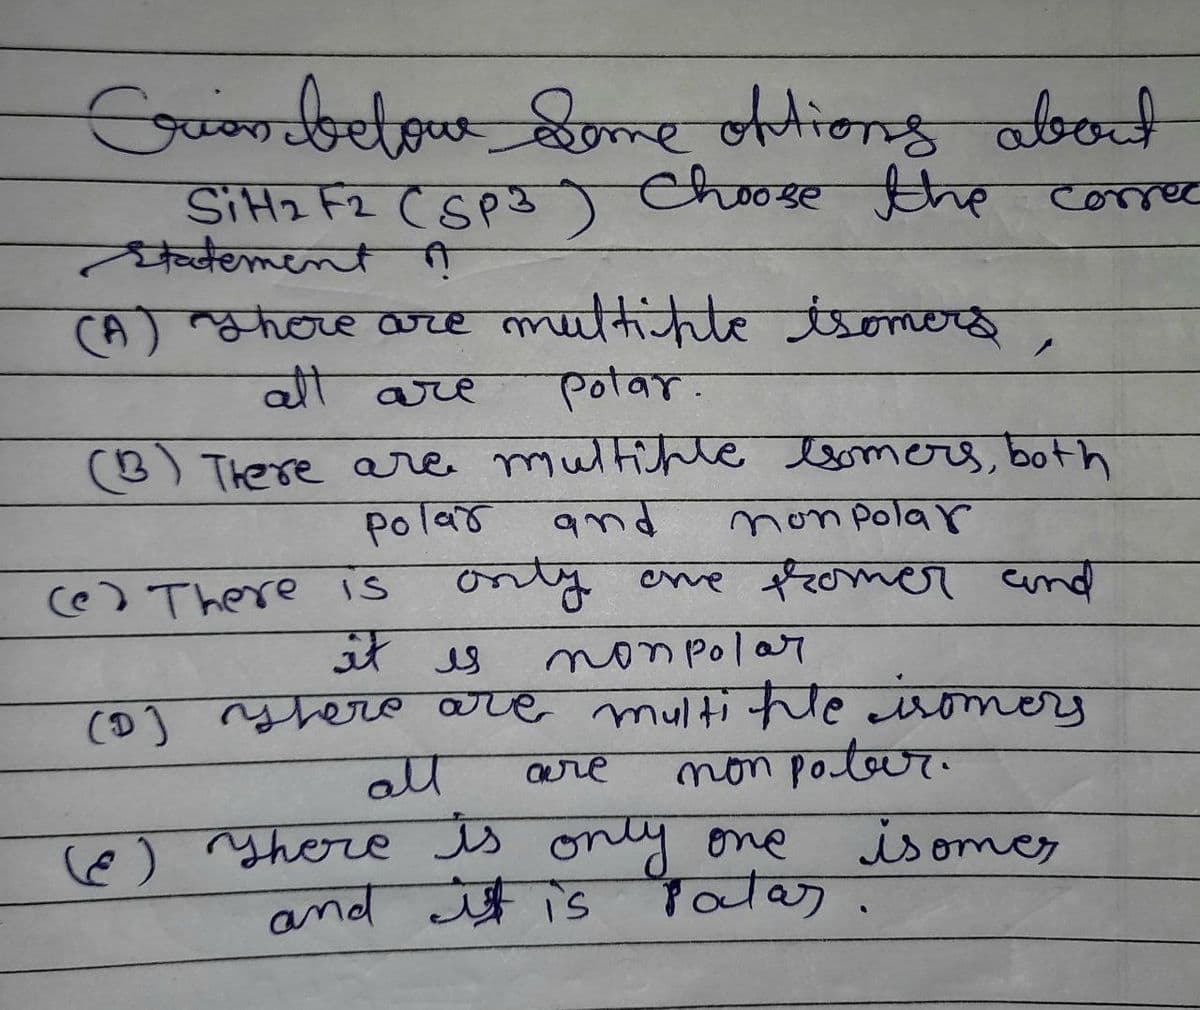 Given below Some options about
SiH2 F2 (SP3) Choose the correc
Statement ?
(A) There are multiple isomers,
all are polar.
(B) There are multiple isomers, both
polar and nonpolar
(c) There is only one isomer and
it is nonpolar
(D) There are multiple isomers
all are non polar.
(e) There is only one isomer
and it is Polar.